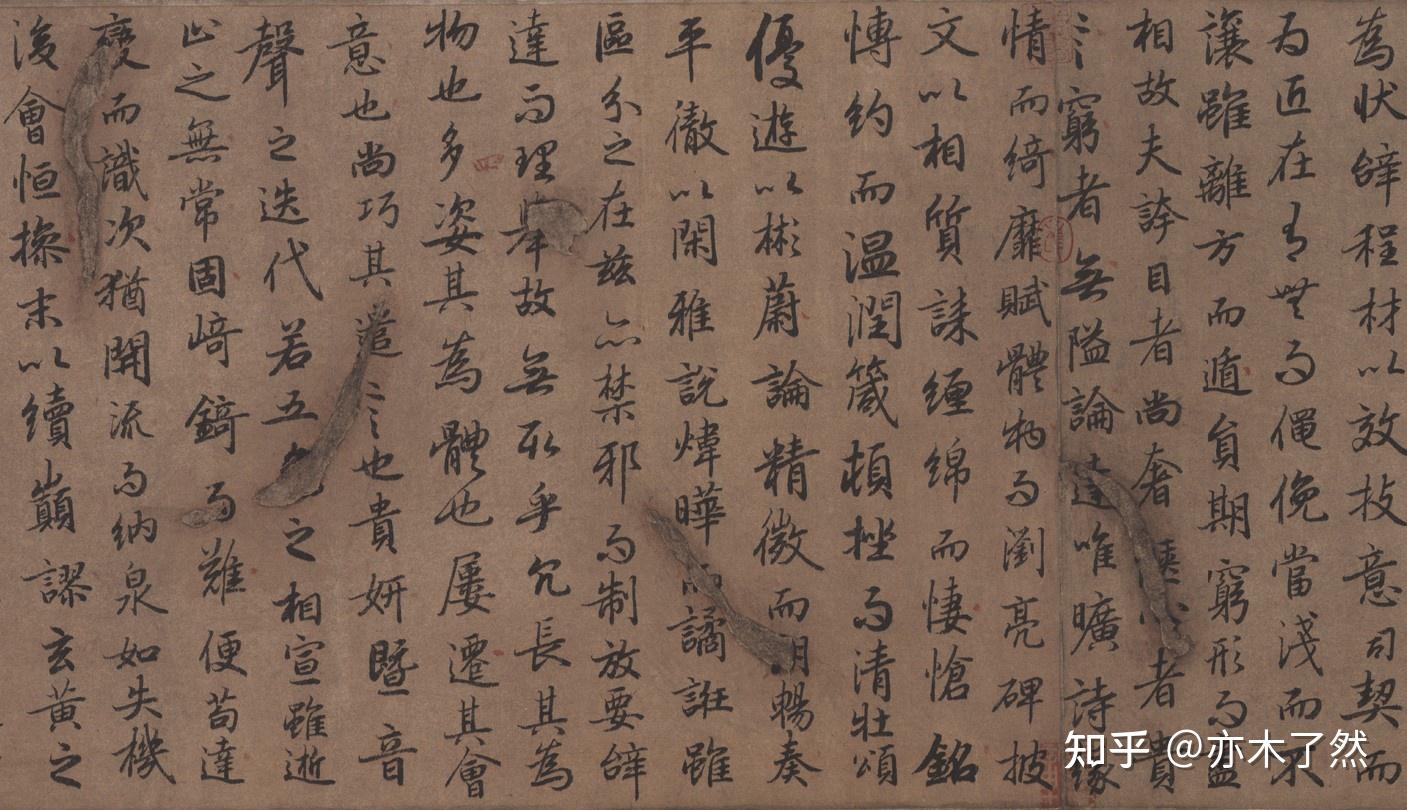 為狀辤程材以效技意司契而
為匠在有無而僶俛當淺而不
讓雖離方而遁員期窮形而盡
相故夫誇目者尚奢者貴
言窮者無隘論達唯曠詩緣
情而綺靡賦體物而瀏亮碑披
文以相質誄纏綿而悽愴銘
博約而溫潤箴頓挫而清壯頌
優遊以彬蔚論精微而朗暢奏
平徹以閑雅說煒曄而譎誑雖
區分之在茲亦禁邪而制放要辤
達而理舉故無取乎冗長其為
物也多姿其為體也屢遷其會
意也尚巧其遣言也貴妍暨音
聲之迭代若五色之相宣雖逝
止之無常固崎錡而難便苟達
變而識次猶開流而納泉如失機
後會恒操末以續顛謬玄黃之
知乎 @亦木了然